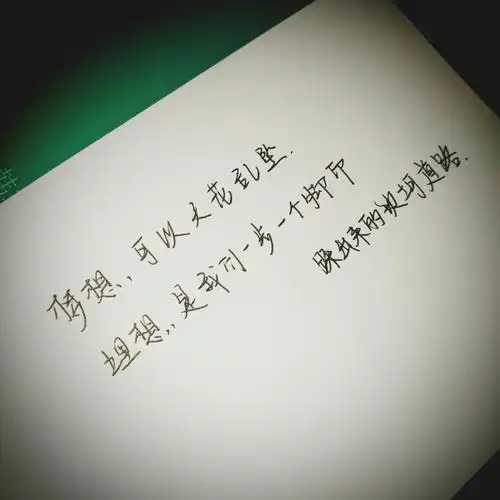 梦想,可以天花乱坠.
理想,是我们一步一个脚印
踩出来的坎坷道路.